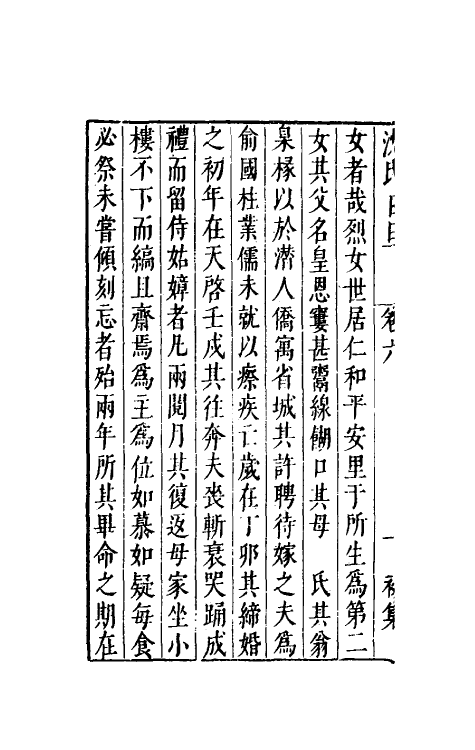 沈氏日旦 卷六 一 初集
女者哉烈女世居仁和平安里于所生爲第二
女其父名皇恩窶甚鬻線餬口其母 氏其翁
臬椽以於濳人僑寓省城其許聘待嫁之夫爲
俞國柱業儒未就以瘵疾亡歲在丁卯其締婚
之初年在天啓壬戍其徃奔夫喪斬衰哭踊成
禮而留侍姑嫜者凡兩閱月其復返母家坐小
樓不下而縞且齋焉爲主爲位如慕如疑每食
必祭未嘗傾刻忘者殆兩年所其畢命之期在